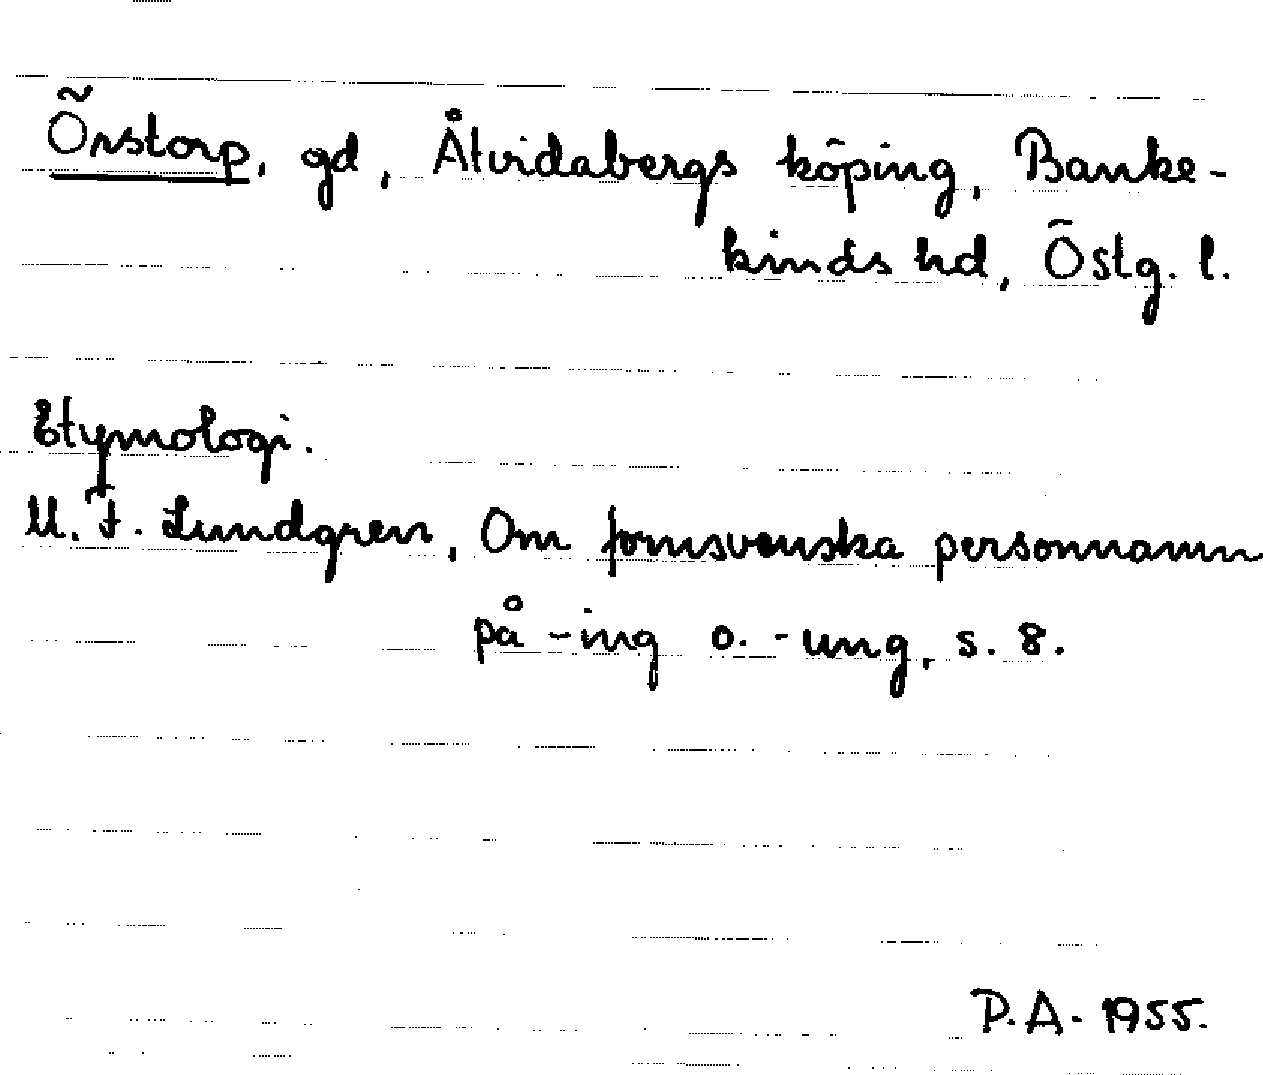 Örstorp, gd, Åtvidabergs köping, Banke-
kinds hd, Östg. l.
Etymologi.
M. F. Lundgren, Om fornsvenska personnamn
på -ing o. -ung, s. 8.
P.A. 1955.